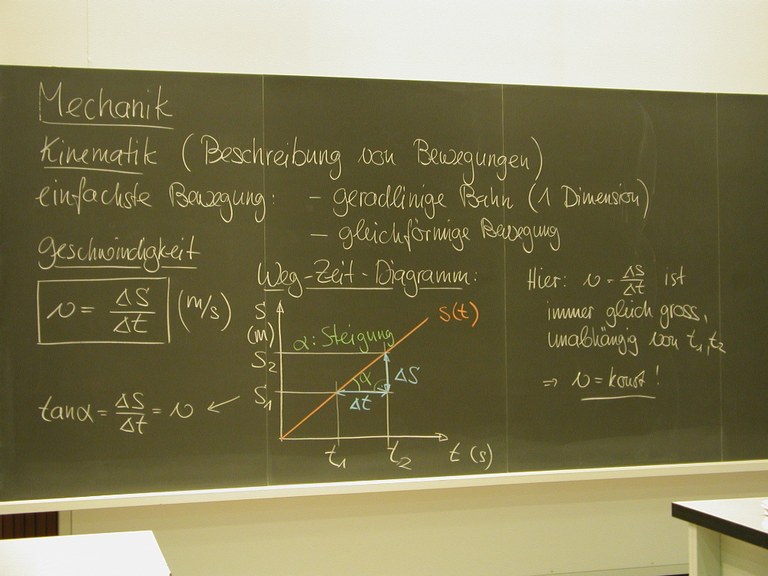 Mechanik
Kinematik (Beschreibung von Bewegungen)
einfachste Bewegung: - geradlinige Bahn (1 Dimension)
- gleichförmige Bewegung
Geschwindigkeit
v = ΔS/Δt (m/s)
tanα = ΔS/Δt = v ↙
Weg-Zeit-Diagramm:
S
(m)
S(t)
α: Steigung
S2
α
ΔS
S1
Δt
t1
t2
t (s)
Hier: v = ΔS/Δt ist
immer gleich gross,
unabhängig von t1, t2
⇒ v = konst!